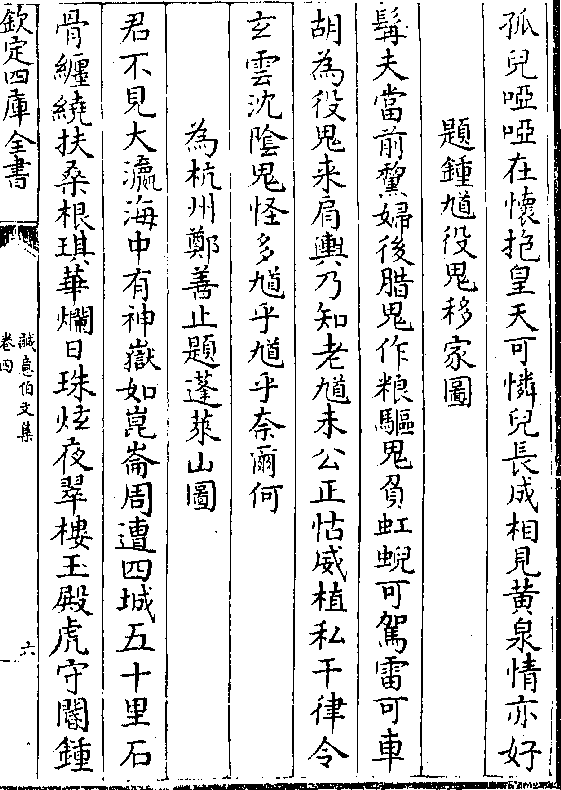 孤兒啞啞在懷抱皇天可憐兒長成相見黃泉情亦好
題鍾馗役鬼移家圖
髯夫當前黧婦後腊鬼作粮驅鬼負虹蜺可駕雷可車
胡為役鬼来肩輿乃知老馗未公正怙威植私干律令
玄雲沈陰鬼怪多馗乎馗乎奈爾何
為杭州鄭善止題蓬萊山圖
君不見大瀛海中有神嶽如崑崙周遭四城五十里石
骨纏繞扶桑根琪華爛日珠炫夜翠樓玉殿虎守閽鍾
欽定四庫全書
誠意伯文集
卷四
六